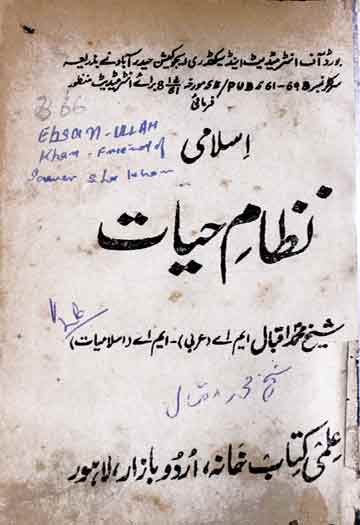 بورڈ آف انٹرمیڈیٹ اینڈ سیکنڈری ایجوکیشن حیدرآباد نے بذریعہ
سرکلر نمبر SE/PUB 561-69B مورخہ برائے انٹرمیڈیٹ منظور
فرمائی
366
Ehsan-ULLAH
Khan - Friend of
Khan
اسلامی
نظامِ حیات
شیخ محمد اقبال ایم اے (عربی)۔ ایم اے (اسلامیات)
شیخ محمد اقبال
علمی کتاب خانہ، اُردو بازار، لاہور